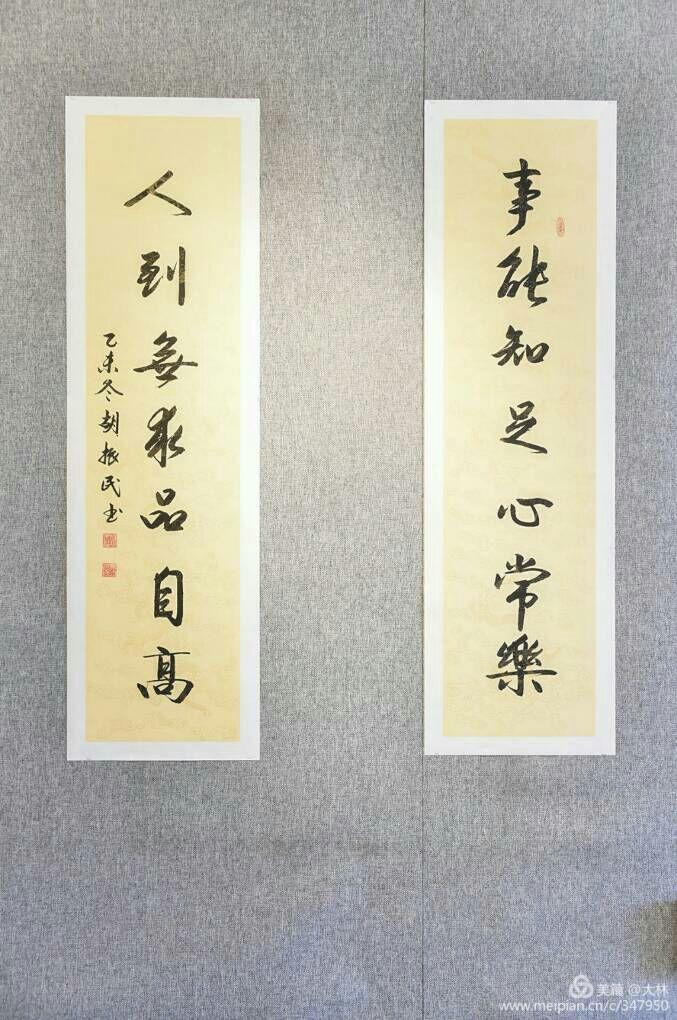 事能知足心常樂
人到無求品自高
乙未冬胡振民书
美篇 @大林
www.meipian.cn/c/347950